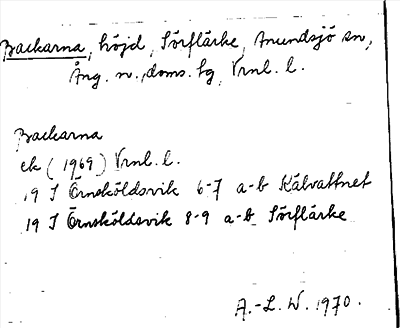 Backarna, höjd, Sörflärke, Anundsjö sn,
Ång. n., doms. sg, Vrnl. l.
Backarna
ek (1969) Vrnl. l.
19 I Örnsköldsvik 6-7 a-b Kälvattnet
19 I Örnsköldsvik 8-9 a-b Sörflärke
A.-L. W. 1970.